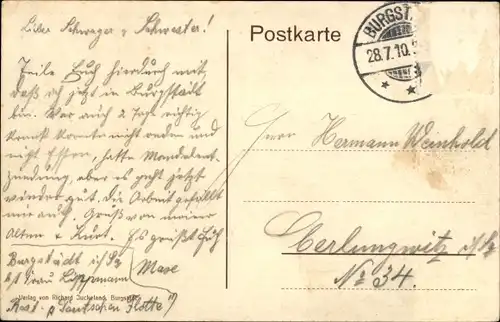 Lieber Schwager & Schwester!
Teile Euch hierdurch mit,
daß ich jetzt in Burgstädt
bin. War auch 2 Tage richtig
krank konnte nicht reden und
nicht Essen, hatte Mandelent-
zündung, aber es geht jetzt
wieder gut, die Arbeit gefällt
mir auch. Gruß von meiner
Alten & Kurt. Es grüßt Euch
Max
Burgstädt i/Sa
b/ Frau Lippmann
Rest. z Deutschen Flotte
Verlag von Richard Juckeland, Burgstädt
Postkarte
BURGST
28.7.10.
Herrn Hermann Weinhold
Oerlungwitz i/Sa
No 34.